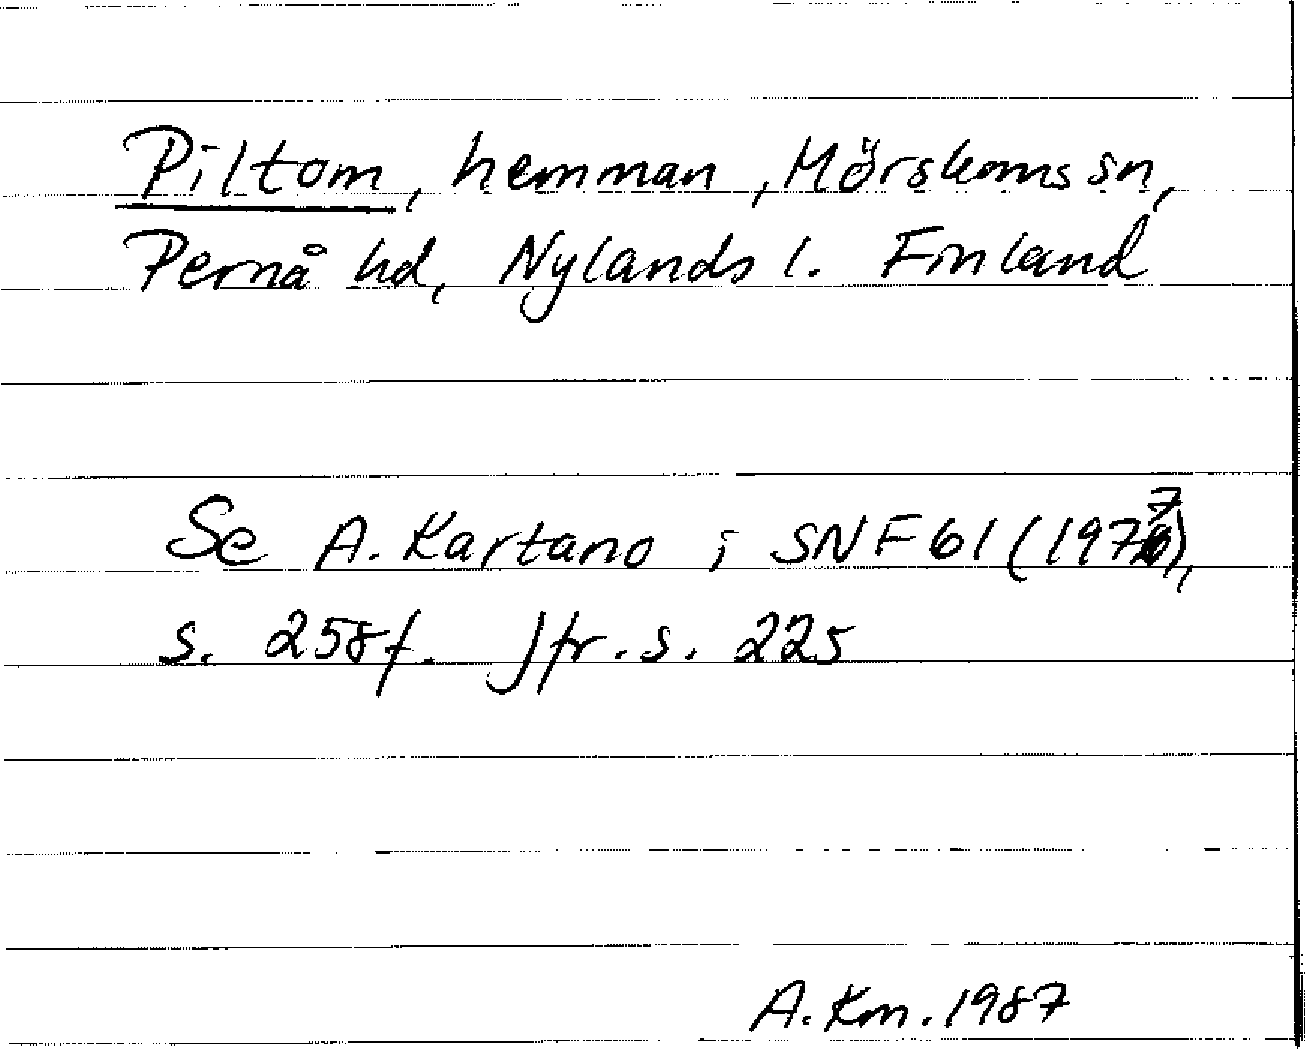 Piltom, hemman, Mörskoms sn,
Pernå hd, Nylands l. Finland
Se A. Kartano i SNF 61 (1977),
s. 258f. Jfr. s. 225
A. Km. 1987